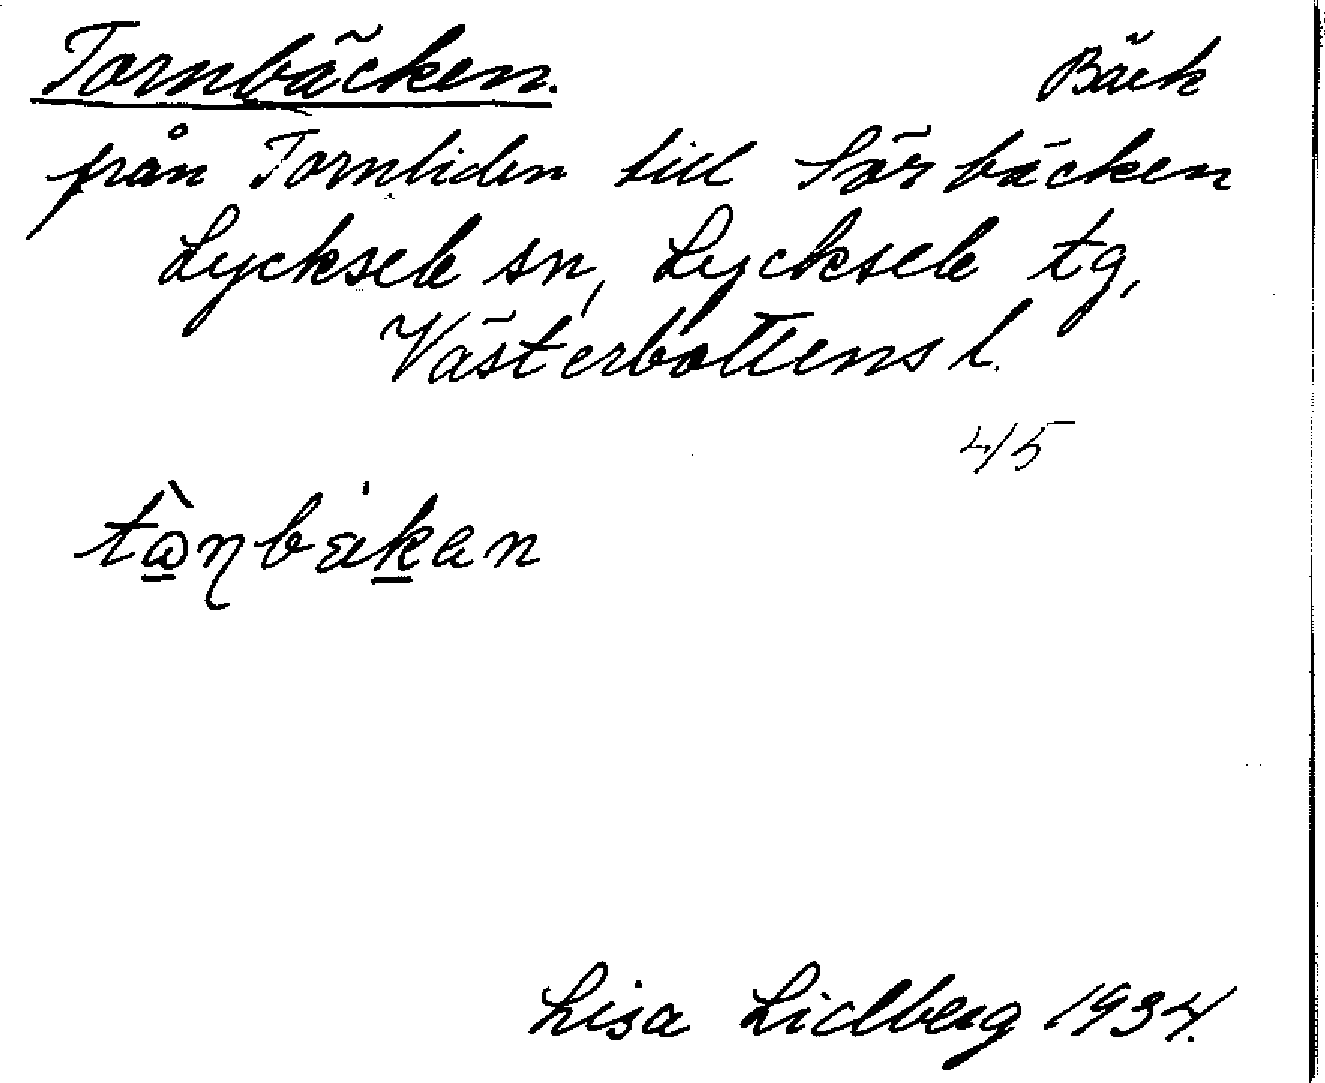 Tornbäcken. Bäck
från Tornliden till Sörbäcken
Lycksele sn, Lycksele tg,
Västerbottens l.
4/5
Lisa Lidberg 1934.